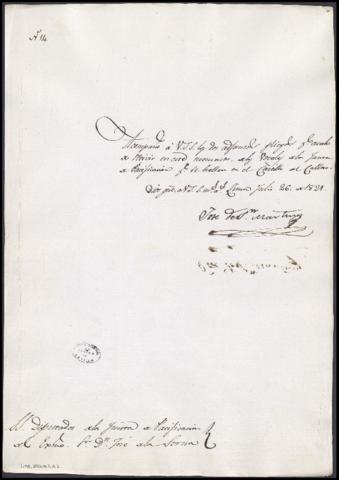 Nº 14
Acompaño á V.S.S. los dos adjuntos pliegos q.e acabo
de recivir en este momento de los Vocales de la Junta
de Pacificacion q.e se hallan en el Castillo del Callao.
Dios gue. a V.S.S. m.s a.s Lima Julio 26. de 1821.
Jose de S.n Martin
SS. Diputados de la Junta de Pacificacion
del Exmo. S.or D.n José de la Serna